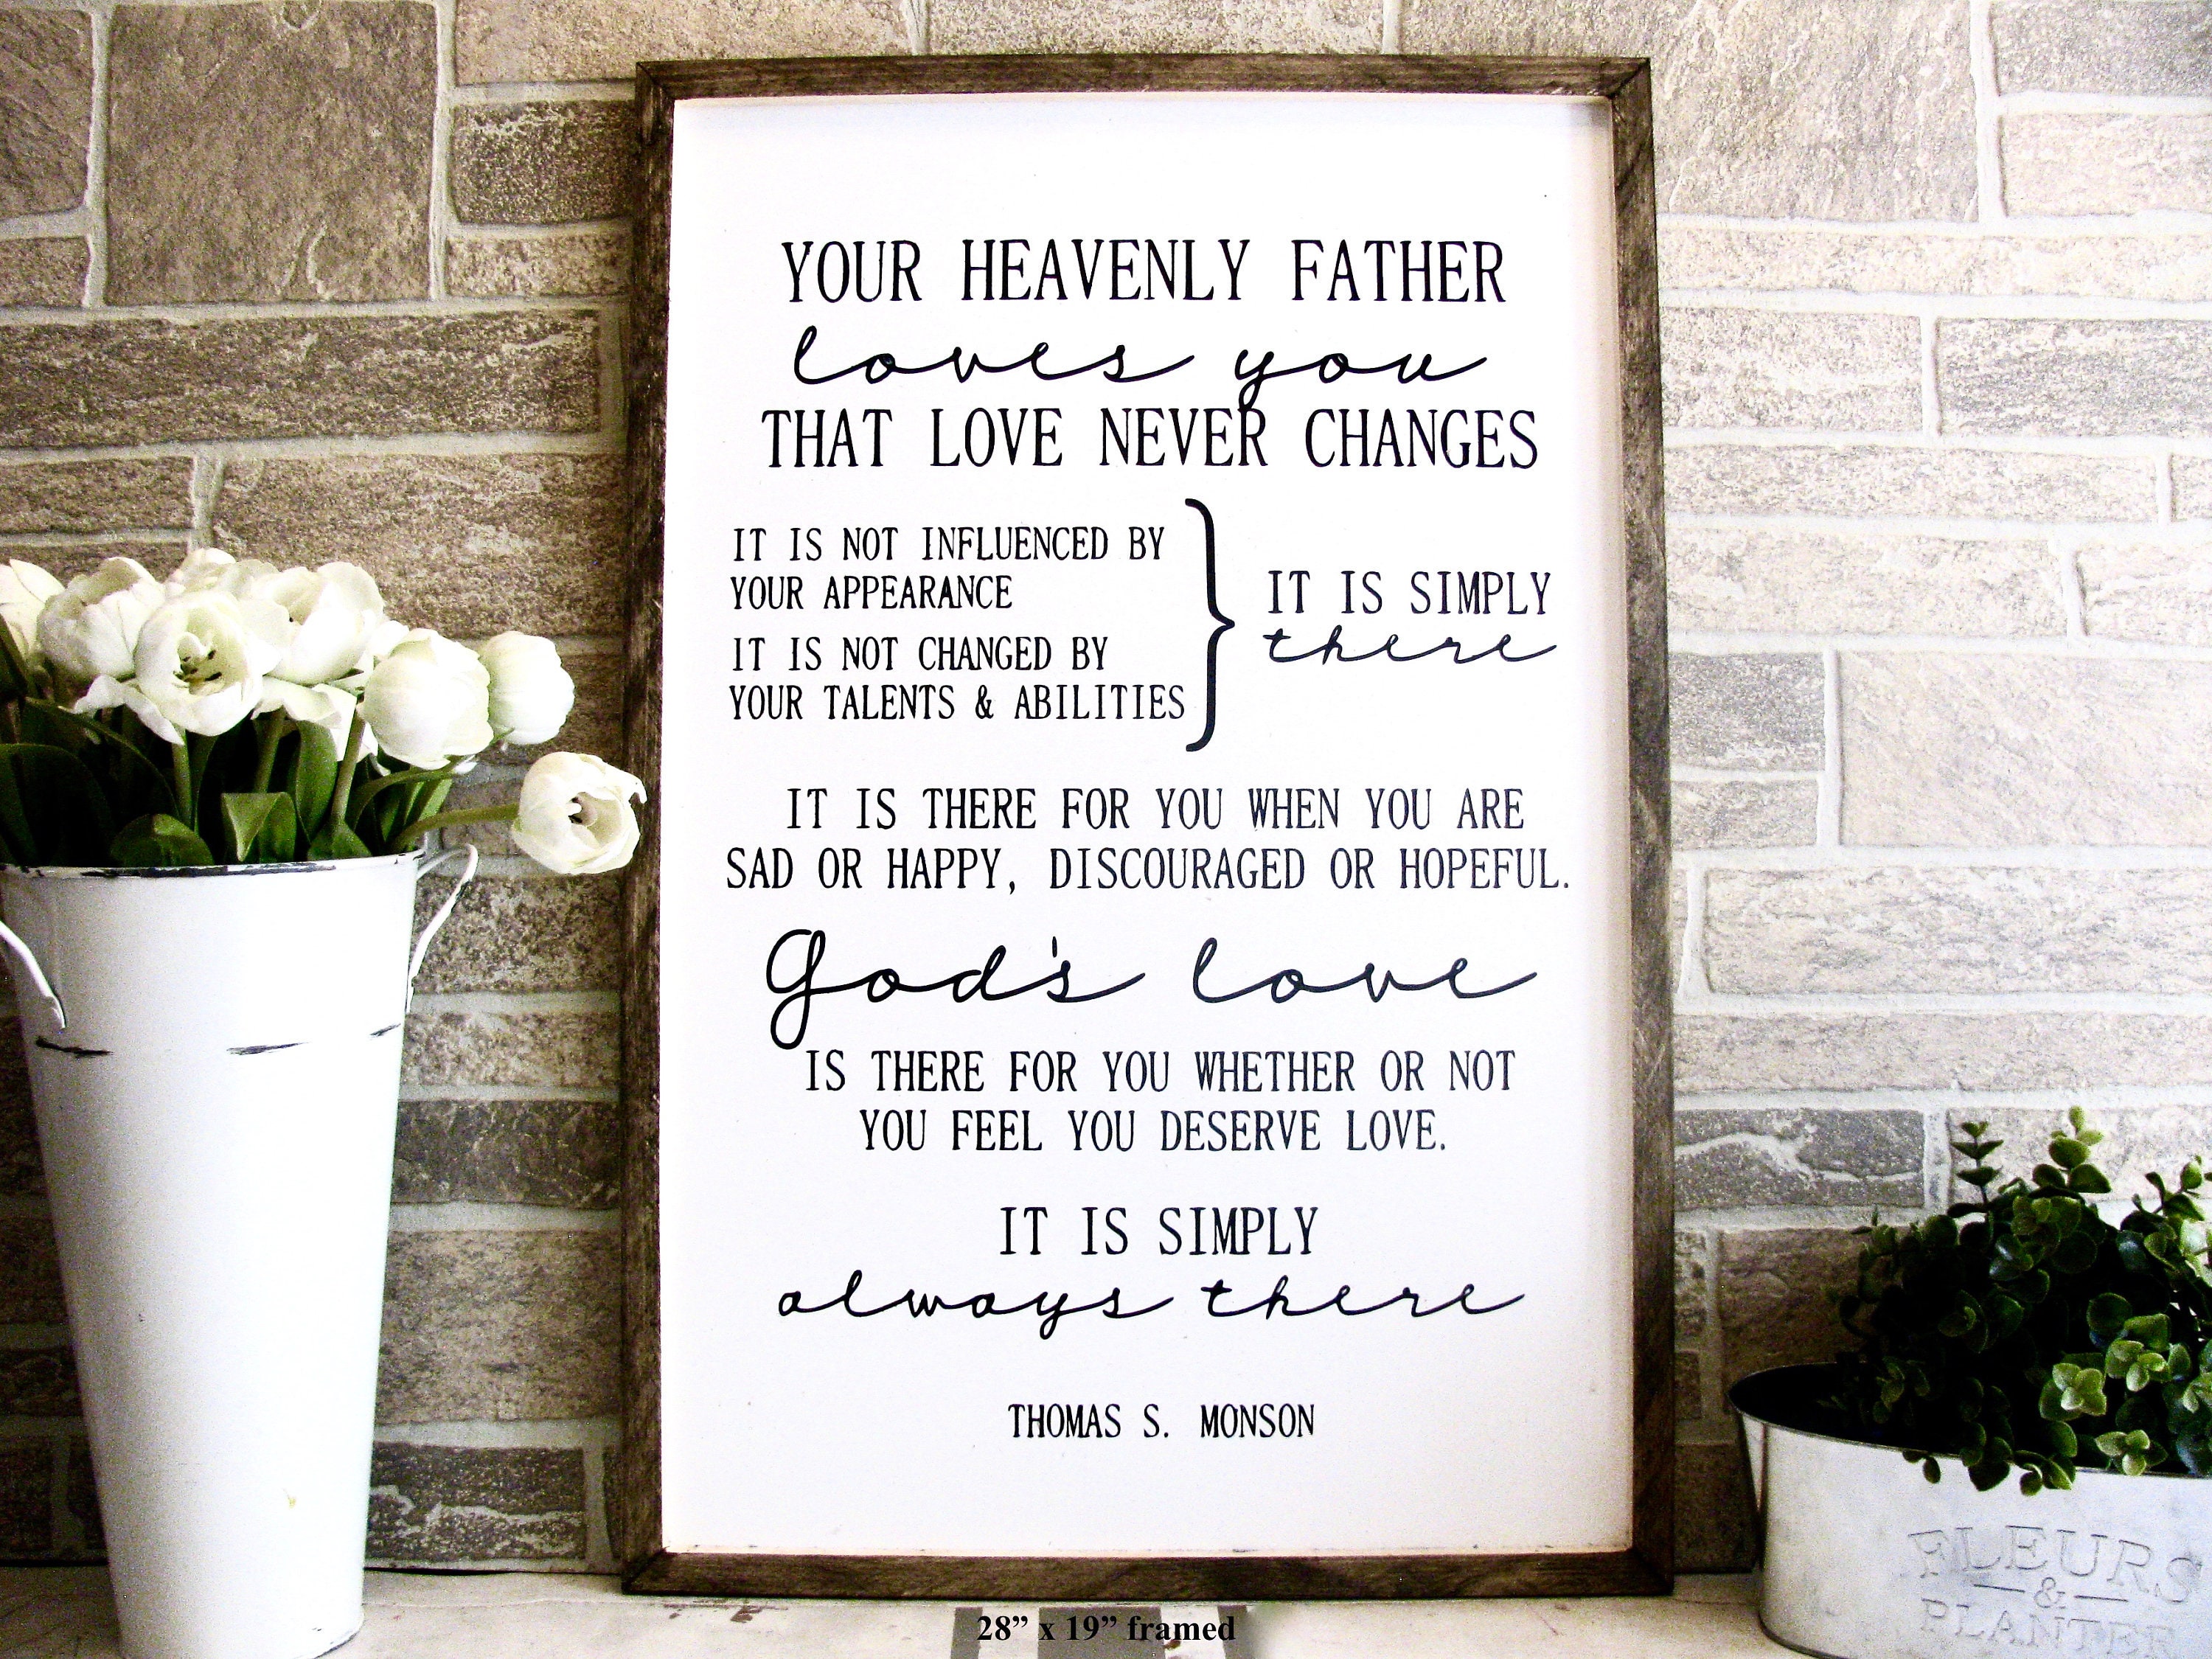 YOUR HEAVENLY FATHER
loves you
THAT LOVE NEVER CHANGES
IT IS NOT INFLUENCED BY
YOUR APPEARANCE
IT IS NOT CHANGED BY
YOUR TALENTS & ABILITIES
IT IS SIMPLY
there
IT IS THERE FOR YOU WHEN YOU ARE
SAD OR HAPPY, DISCOURAGED OR HOPEFUL.
God's love
IS THERE FOR YOU WHETHER OR NOT
YOU FEEL YOU DESERVE LOVE.
IT IS SIMPLY
always there
THOMAS S. MONSON
28” x 19” framed
FLEURS
&
PLANTER